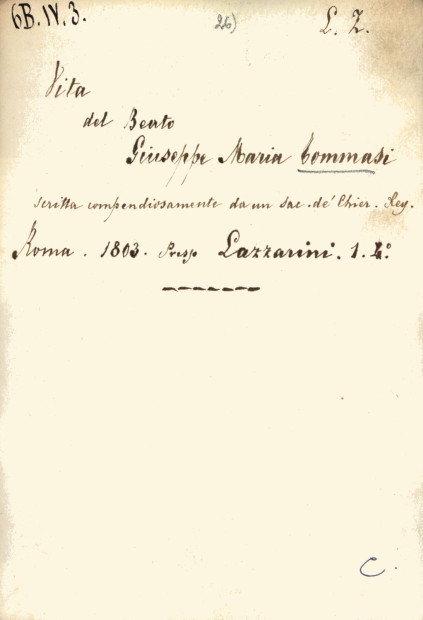 6B.IV.3.
26)
L. Z.
Vita
del Beato
Giuseppe Maria Tommasi
scritta compendiosamente da un sac. de' Chier. Reg.
Roma. 1803. Presp Lazzarini. 1. 4°
C.